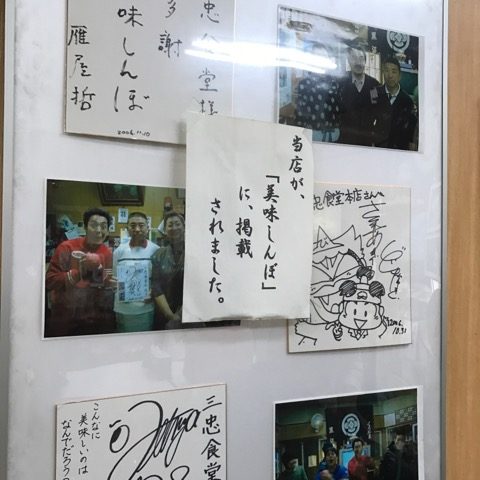 三忠食堂様
多謝
味しんぼ
雁屋哲
2006.11.10
当店が、
「美味しんぼ」
に、掲載
されました。
忠食堂本店さん江
2006.
10.31
三忠食堂
こんなに
美味しいのは
なんでだろう